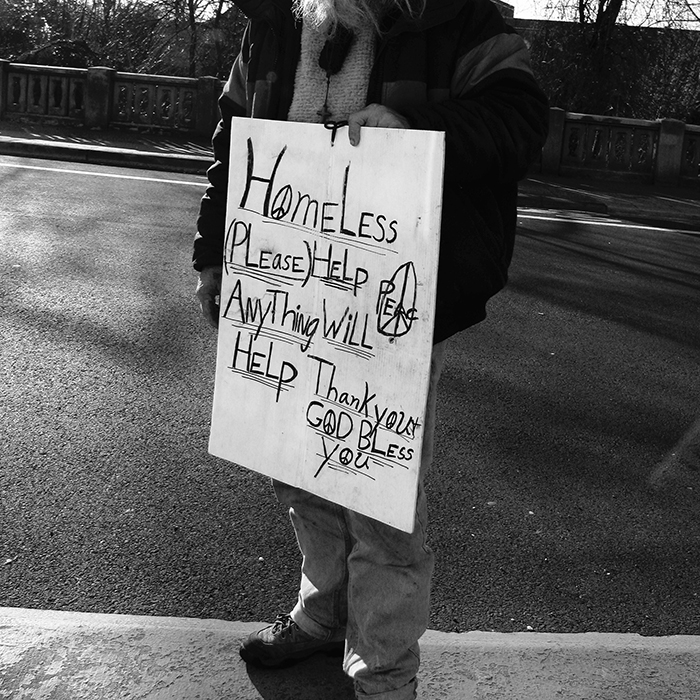 HomeLess
(PLease) HeLp
PEAC
AnyThing WiLL
HeLp Thank you +
GOD BLess
you